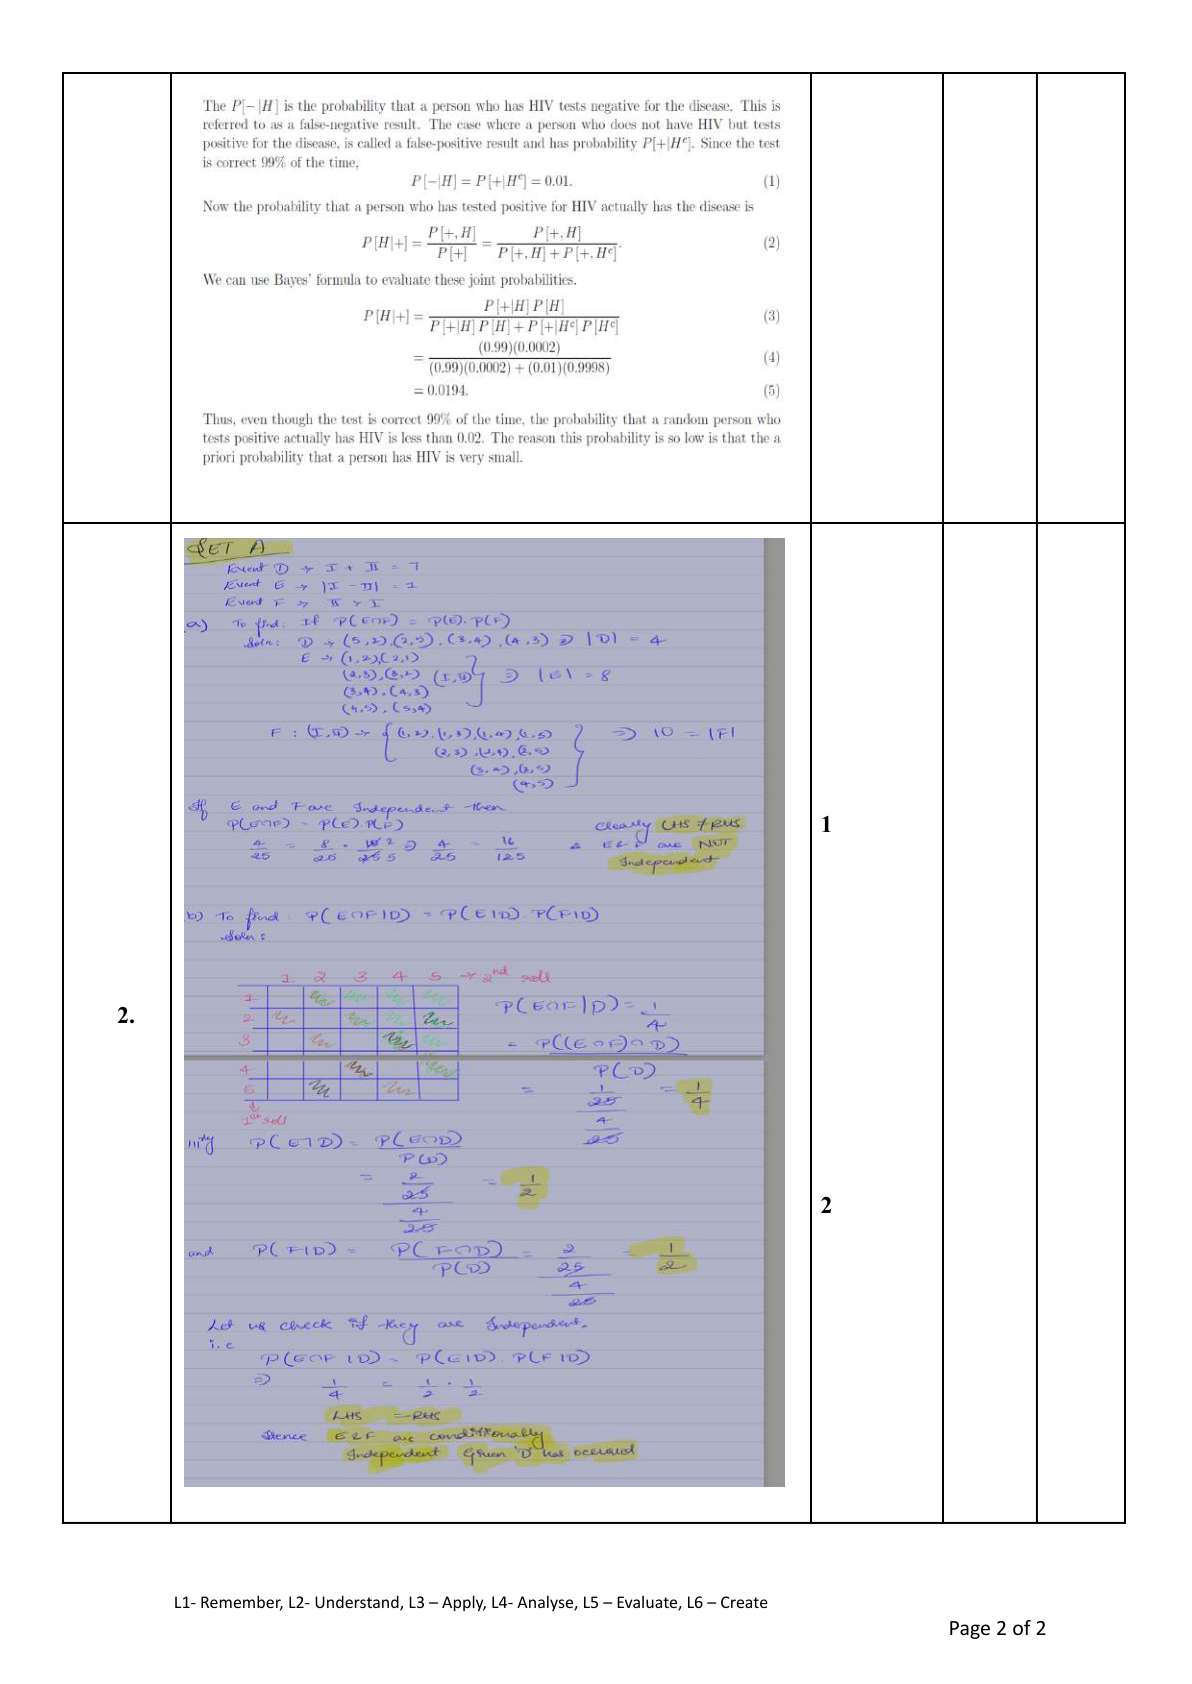 The P[−|H] is the probability that a person who has HIV tests negative for the disease. This is
referred to as a false-negative result. The case where a person who does not have HIV but tests
positive for the disease, is called a false-positive result and has probability P[+|Hᶜ]. Since the test
is correct 99% of the time,
P[−|H] = P[+|Hᶜ] = 0.01. (1)
Now the probability that a person who has tested positive for HIV actually has the disease is
P[H|+] = P[+, H] / P[+] = P[+, H] / (P[+, H] + P[+, Hᶜ]). (2)
We can use Bayes' formula to evaluate these joint probabilities.
P[H|+] = P[+|H] P[H] / (P[+|H] P[H] + P[+|Hᶜ] P[Hᶜ]) (3)
= (0.99)(0.0002) / ((0.99)(0.0002) + (0.01)(0.9998)) (4)
= 0.0194. (5)
Thus, even though the test is correct 99% of the time, the probability that a random person who
tests positive actually has HIV is less than 0.02. The reason this probability is so low is that the a
priori probability that a person has HIV is very small.
2.
SET A
Event D → I + II = 7
Event E → |I − II| = 1
Event F → II > I
a) To find: If P(E∩F) = P(E).P(F)
Soln: D → (5,2),(2,5),(3,4),(4,3) ⇒ |D| = 4
E → (1,2),(2,1)
(2,3),(3,2) (I,II) ⇒ |E| = 8
(3,4),(4,3)
(4,5),(5,4)
F : (I,II) → {(1,2),(1,3),(1,4),(1,5) ⇒ 10 = |F|
(2,3),(2,4),(2,5)
(3,4),(3,5)
(4,5)}
If E and F are Independent then
P(E∩F) = P(E).P(F) Clearly LHS ≠ RHS
4/25 = 8/25 . 10/25 2/5 ⇒ 4/25 = 16/125 E & F are NOT
Independent
1
b) To find: P(E∩F|D) = P(E|D).P(F|D)
Soln:
1 2 3 4 5 → 2nd roll
1
2
3
4
5
1st roll
P(E∩F|D) = 1/4
= P((E∩F)∩D) / P(D)
= (1/25) / (4/25) = 1/4
llly P(E|D) = P(E∩D) / P(D)
= (2/25) / (4/25) = 1/2
2
and P(F|D) = P(F∩D) / P(D) = (2/25) / (4/25) = 1/2
Let us check if they are Independent.
i.e
P(E∩F|D) = P(E|D).P(F|D)
⇒ 1/4 = 1/2 . 1/2
LHS = RHS
Hence E & F are conditionally
Independent Given 'D' has occured
L1- Remember, L2- Understand, L3 – Apply, L4- Analyse, L5 – Evaluate, L6 – Create
Page 2 of 2